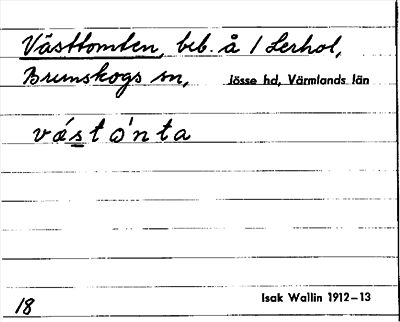 Västtomten, beb. å 1 Lerhol,
Brunskogs sn, Jösse hd, Värmlands län
vǽst ɷ́nta
Isak Wallin 1912–13
18